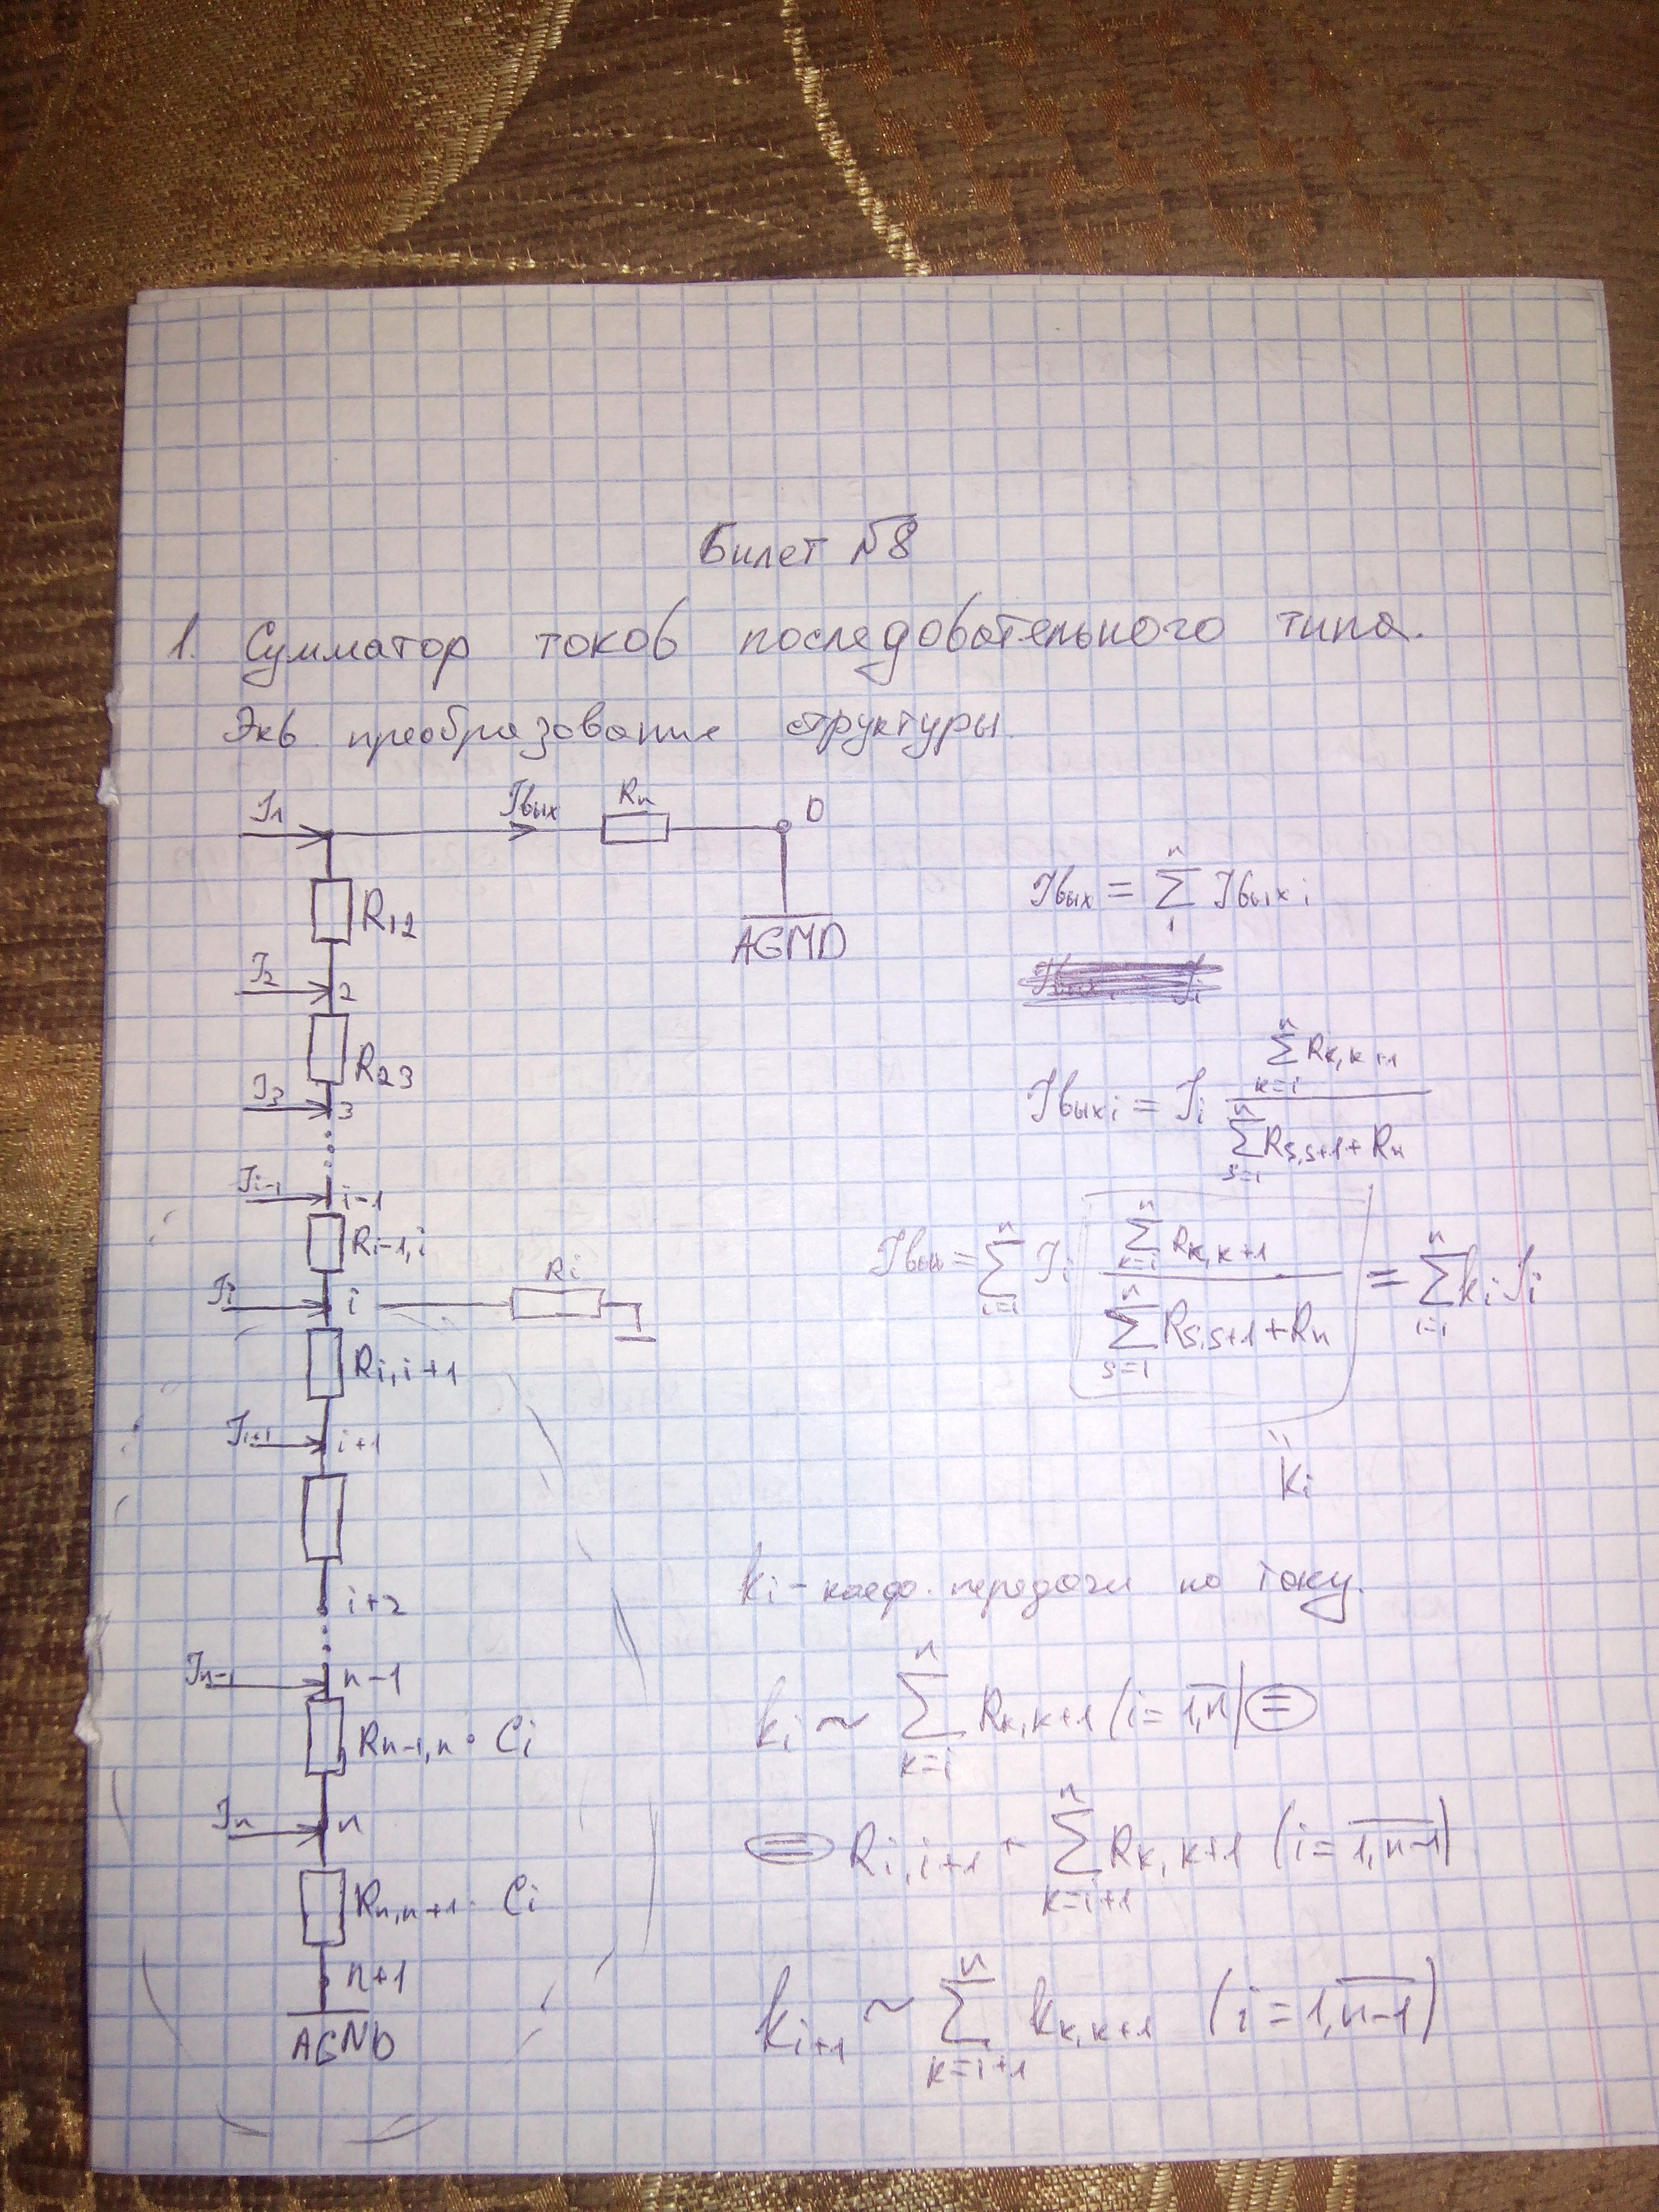 Билет №8
1. Сумматор токов последовательного типа.
Экв. преобразование структуры.
I1
Iвых
Rн
0
AGND
R12
I2
2
R23
I3
3
Ii-1
i-1
Ri-1,i
Ii
i
Ri
Ri,i+1
Ii+1
i+1
i+2
In-1
n-1
Rn-1,n · Ci
In
n
Rn,n+1 · Ci
n+1
AGND
Iвых = ∑_{1}^{n} Iвых i
Iвых i = Ii (∑_{k=i}^{n} Rk,k+1) / (∑_{s=1}^{n} Rs,s+1 + Rн)
Iвых = ∑_{i=1}^{n} Ii (∑_{k=i}^{n} Rk,k+1) / (∑_{s=1}^{n} Rs,s+1 + Rн) = ∑_{i=1}^{n} ki Ii
"
ki
ki - коэф. передачи по току.
ki ~ ∑_{k=i}^{n} Rk,k+1 (i = 1,n) =
= Ri,i+1 + ∑_{k=i+1}^{n} Rk,k+1 (i = 1,n-1)
ki+1 ~ ∑_{k=i+1}^{n} kk,k+1 (i = 1,n-1)